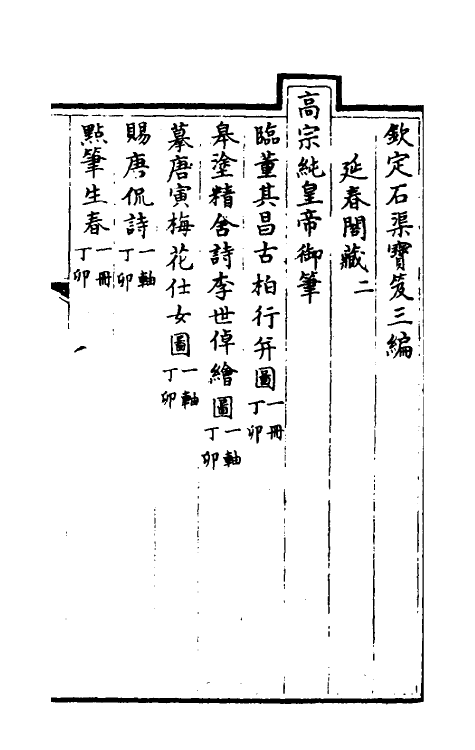 欽定石渠寶笈三編
延春閣藏二
高宗純皇帝御筆
臨董其昌古柏行并圖一冊丁卯
皋塗精舍詩李世倬繪圖一軸丁卯
摹唐寅梅花仕女圖一軸丁卯
賜唐侃詩一軸丁卯
點筆生春一冊丁卯